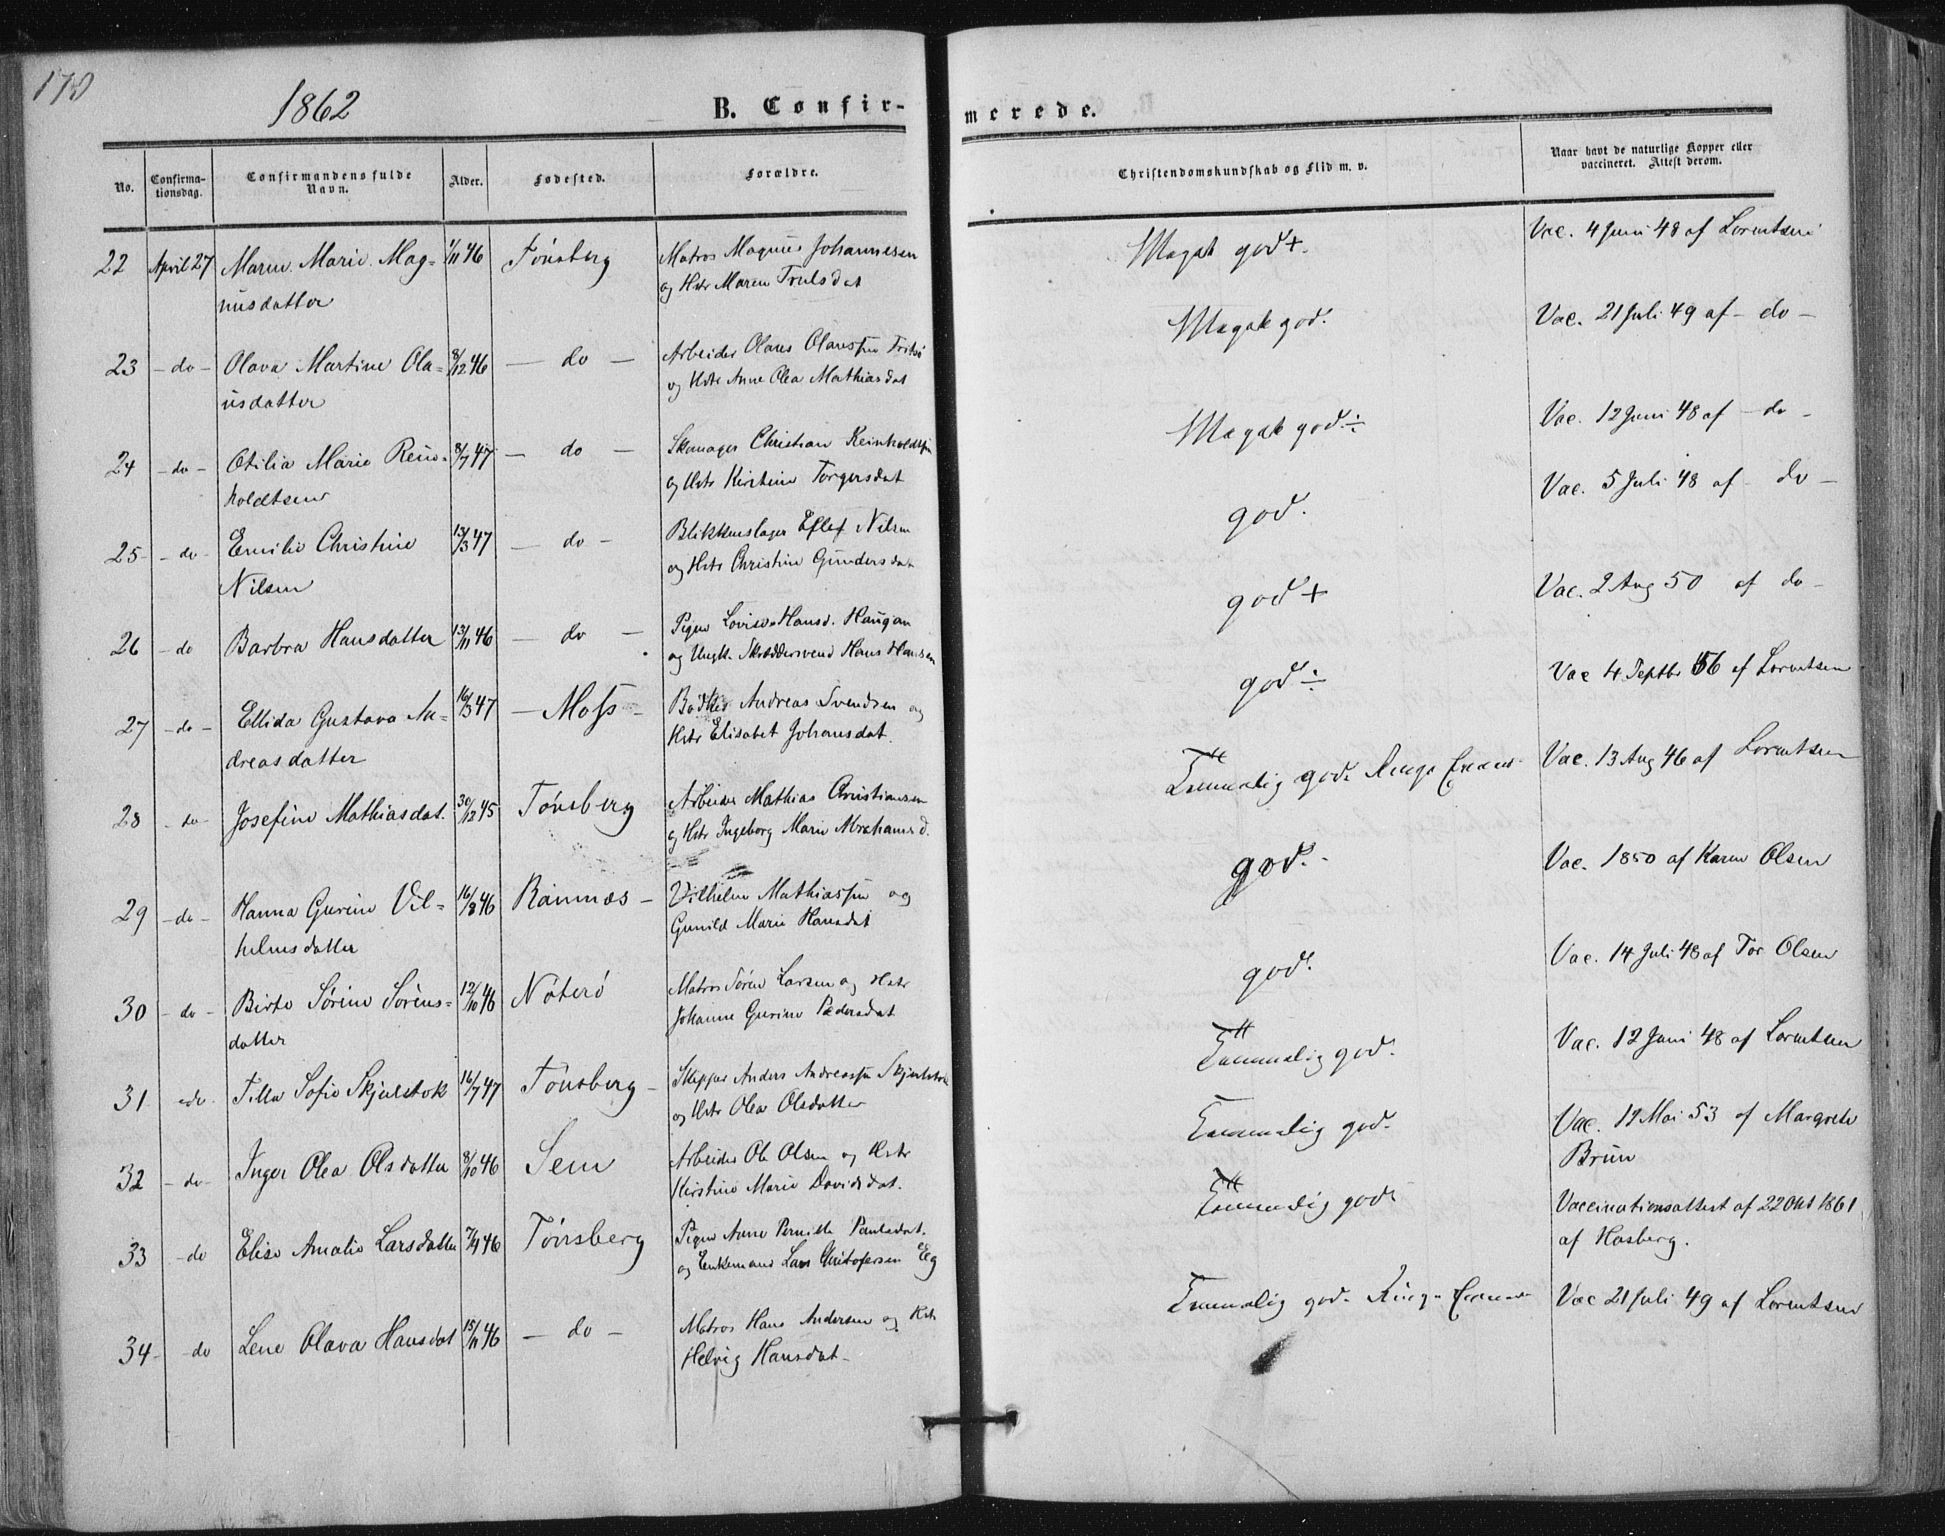 170
1862
B. Confir-
merede.
No.
Confirma-
tionsdag.
Confirmandens fulde
Navn.
Alder.
Fødested.
Forældre.
Christendomskundskab og Flid m. v.
Naar havt de naturlige Kopper eller
vaccineret. Attest derom.
22 April 27 Maren Marie Mag- 1/11 46 Tønsberg Matros Magnus Johannesen Meget god +. Vac. 4 Juni 48 af Lorentsen
nusdatter og Hstr Maren Trulsdat
23 - do - Olava Martine Ola- 8/12 46 - do - Arbeider Olaus Olaussen Meget god. Vac. 21 Juli 49 af - do -
usdatter og Hstr Anne Olea Mathiasdat
24 - do - Otilia Marie Rein- 8/7 47 - do - Skomager Christian Reinholdtsen Meget god ÷ Vac. 12 Juni 48 af - do -
holdtsen og Hstr Kirstine Torgersdat
25 - do - Emilie Christine 13/3 47 - do - Blikkenslager Eflef Nilsen god. Vac. 5 Juli 48 af - do -
Nilsen og Hstr Christine Gundersdat
26 - do Barbra Hansdatter 13/11 46 - do - Pigen Lovise Hansd. Haugan god + Vac. 2 Aug 50 af do -
og Ungk. Skræddersvend Hans Hansen
27 - do - Ellida Gustava An- 16/3 47 - Moss - Bødker Andreas Svendsen og god ÷ Vac 4 Septbr 56 af Lorentsen
dreasdatter Hstr Elisabet Johansdat.
28 - do - Josefine Mathiasdat. 30/12 45 Tønsberg Arbeider Mathias Christiansen Temmelig god. Ringe Vac. 13 Aug 46 af Lorentsen
og Hstr Ingeborg Marie Abrahamsd.
29 - do - Hanna Gurine Vil- 16/8 46 Ramnæs - Vilhelm Mathiassen og god. Vac. 1850 af Karen Olsen
helmsdatter Gunild Marie Hansdat
30 - do - Birte Sørine Sørens- 12/10 46 Nøterø Matros Søren Larsen og Hstr god. Vac. 14 Juli 48 af Tor Olsen
datter Johanne Gurine Pedersdat
31 - do - Tilla Sofie Skjelstok 16/7 47 Tønsberg - Skipper Anders Andreassen Temmelig god. Vac. 12 Juni 48 af Lorentsen
og Hstr Olea Olsdatter
32 - do - Inger Olea Olsdatter 8/10 46 Sem Arbeider Ole Olsen og Hstr Temmelig god. Vac. 12 Mai 53 af Margrete
Kirstine Marie Davidsdat. Brun
33 - do Elise Amalie Larsdatter 7/9 46 Tønsberg Pigen Anne Pernille Paulsdat. Temmelig god. Vaccinationsattest af 22 Okt 1861
og Enkemand Lars Christofersen Eeg af Hasberg.
34 - do Lene Olava Hansdat 15/11 46 - do - Matros Hans Andersen og Hstr Temmelig god. Ringe Vac 21 Juli 49 af Lorentsen
Helvig Hansdat -